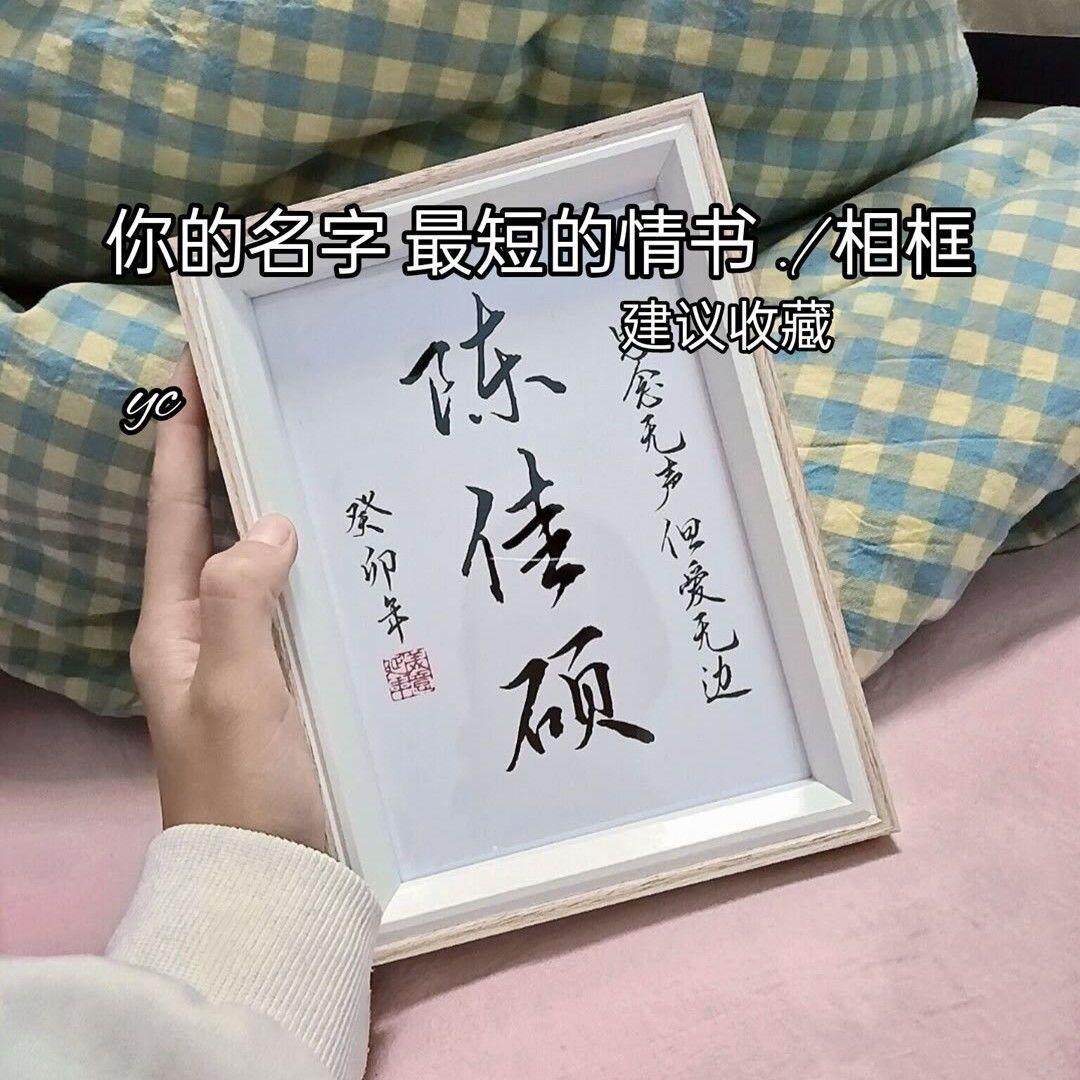 你的名字 最短的情书 ./相框
建议收藏
yc
念无声但爱无边
陈佳硕
癸卯年